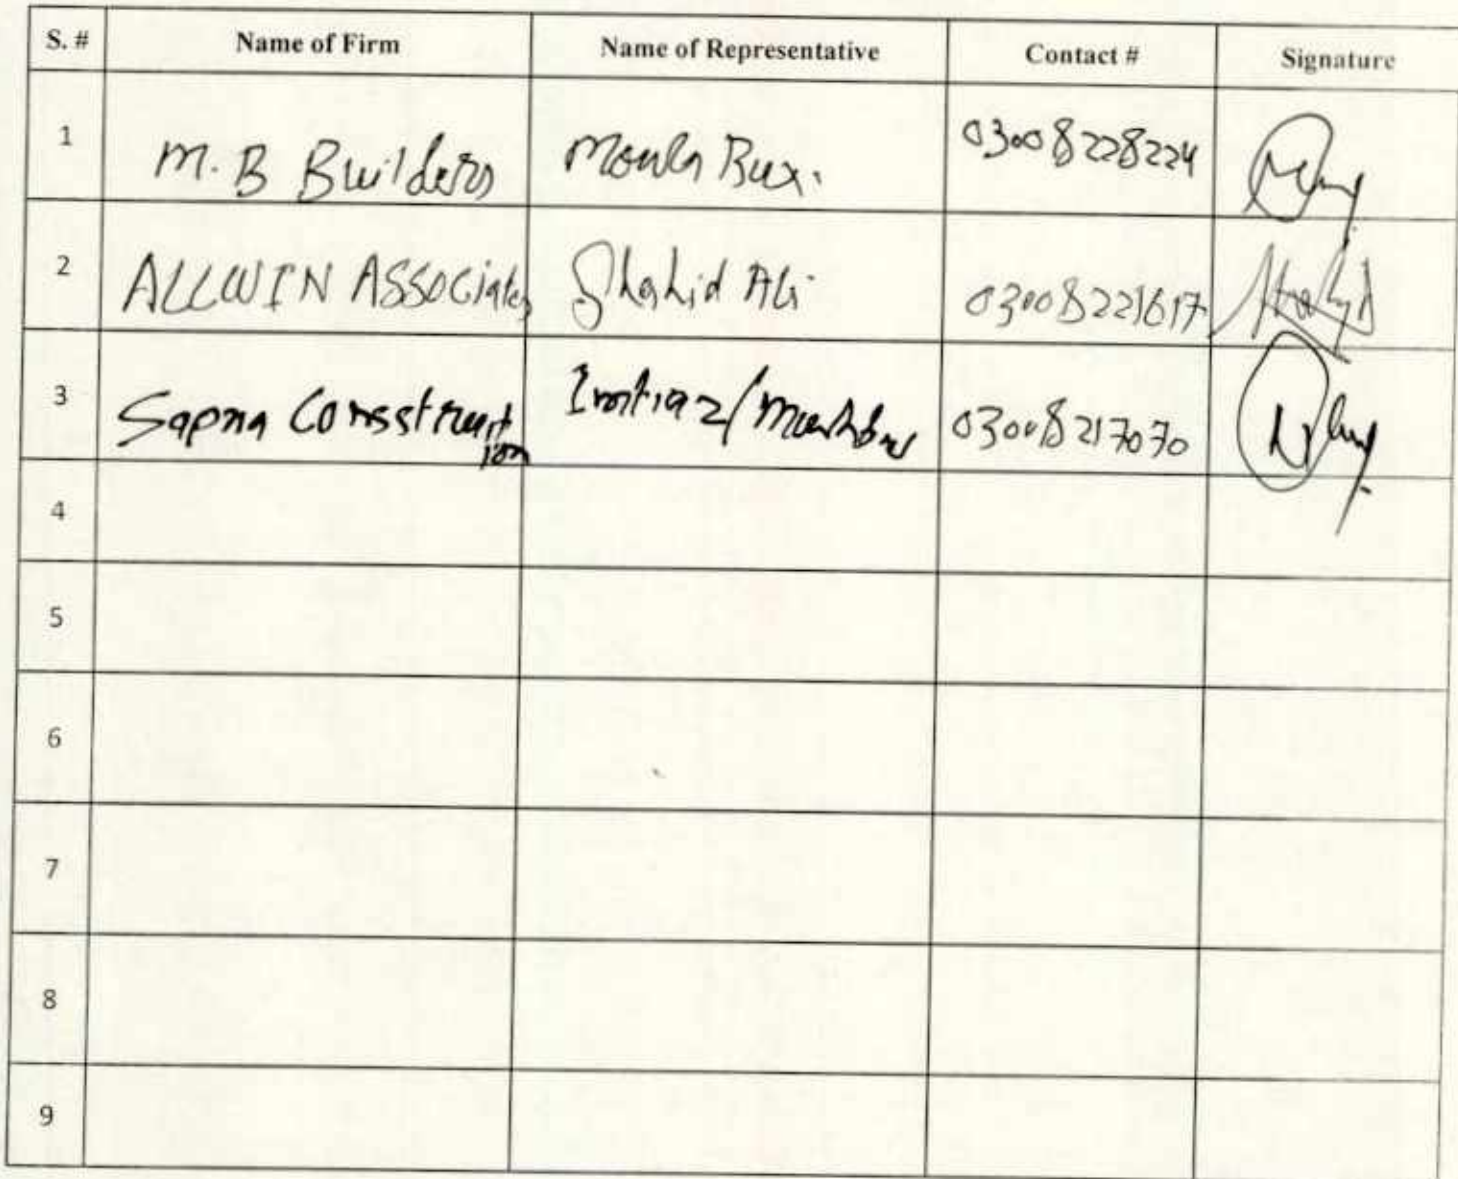 S. # Name of Firm Name of Representative Contact # Signature
1 M. B Builders Moula Bux. 03008228224
2 ALLWIN ASSOCiates Shahid Ali 03008221617 Shahid
3 Sapna Consstruct Imtiaz/ 03008217070
ion
4
5
6
7
8
9